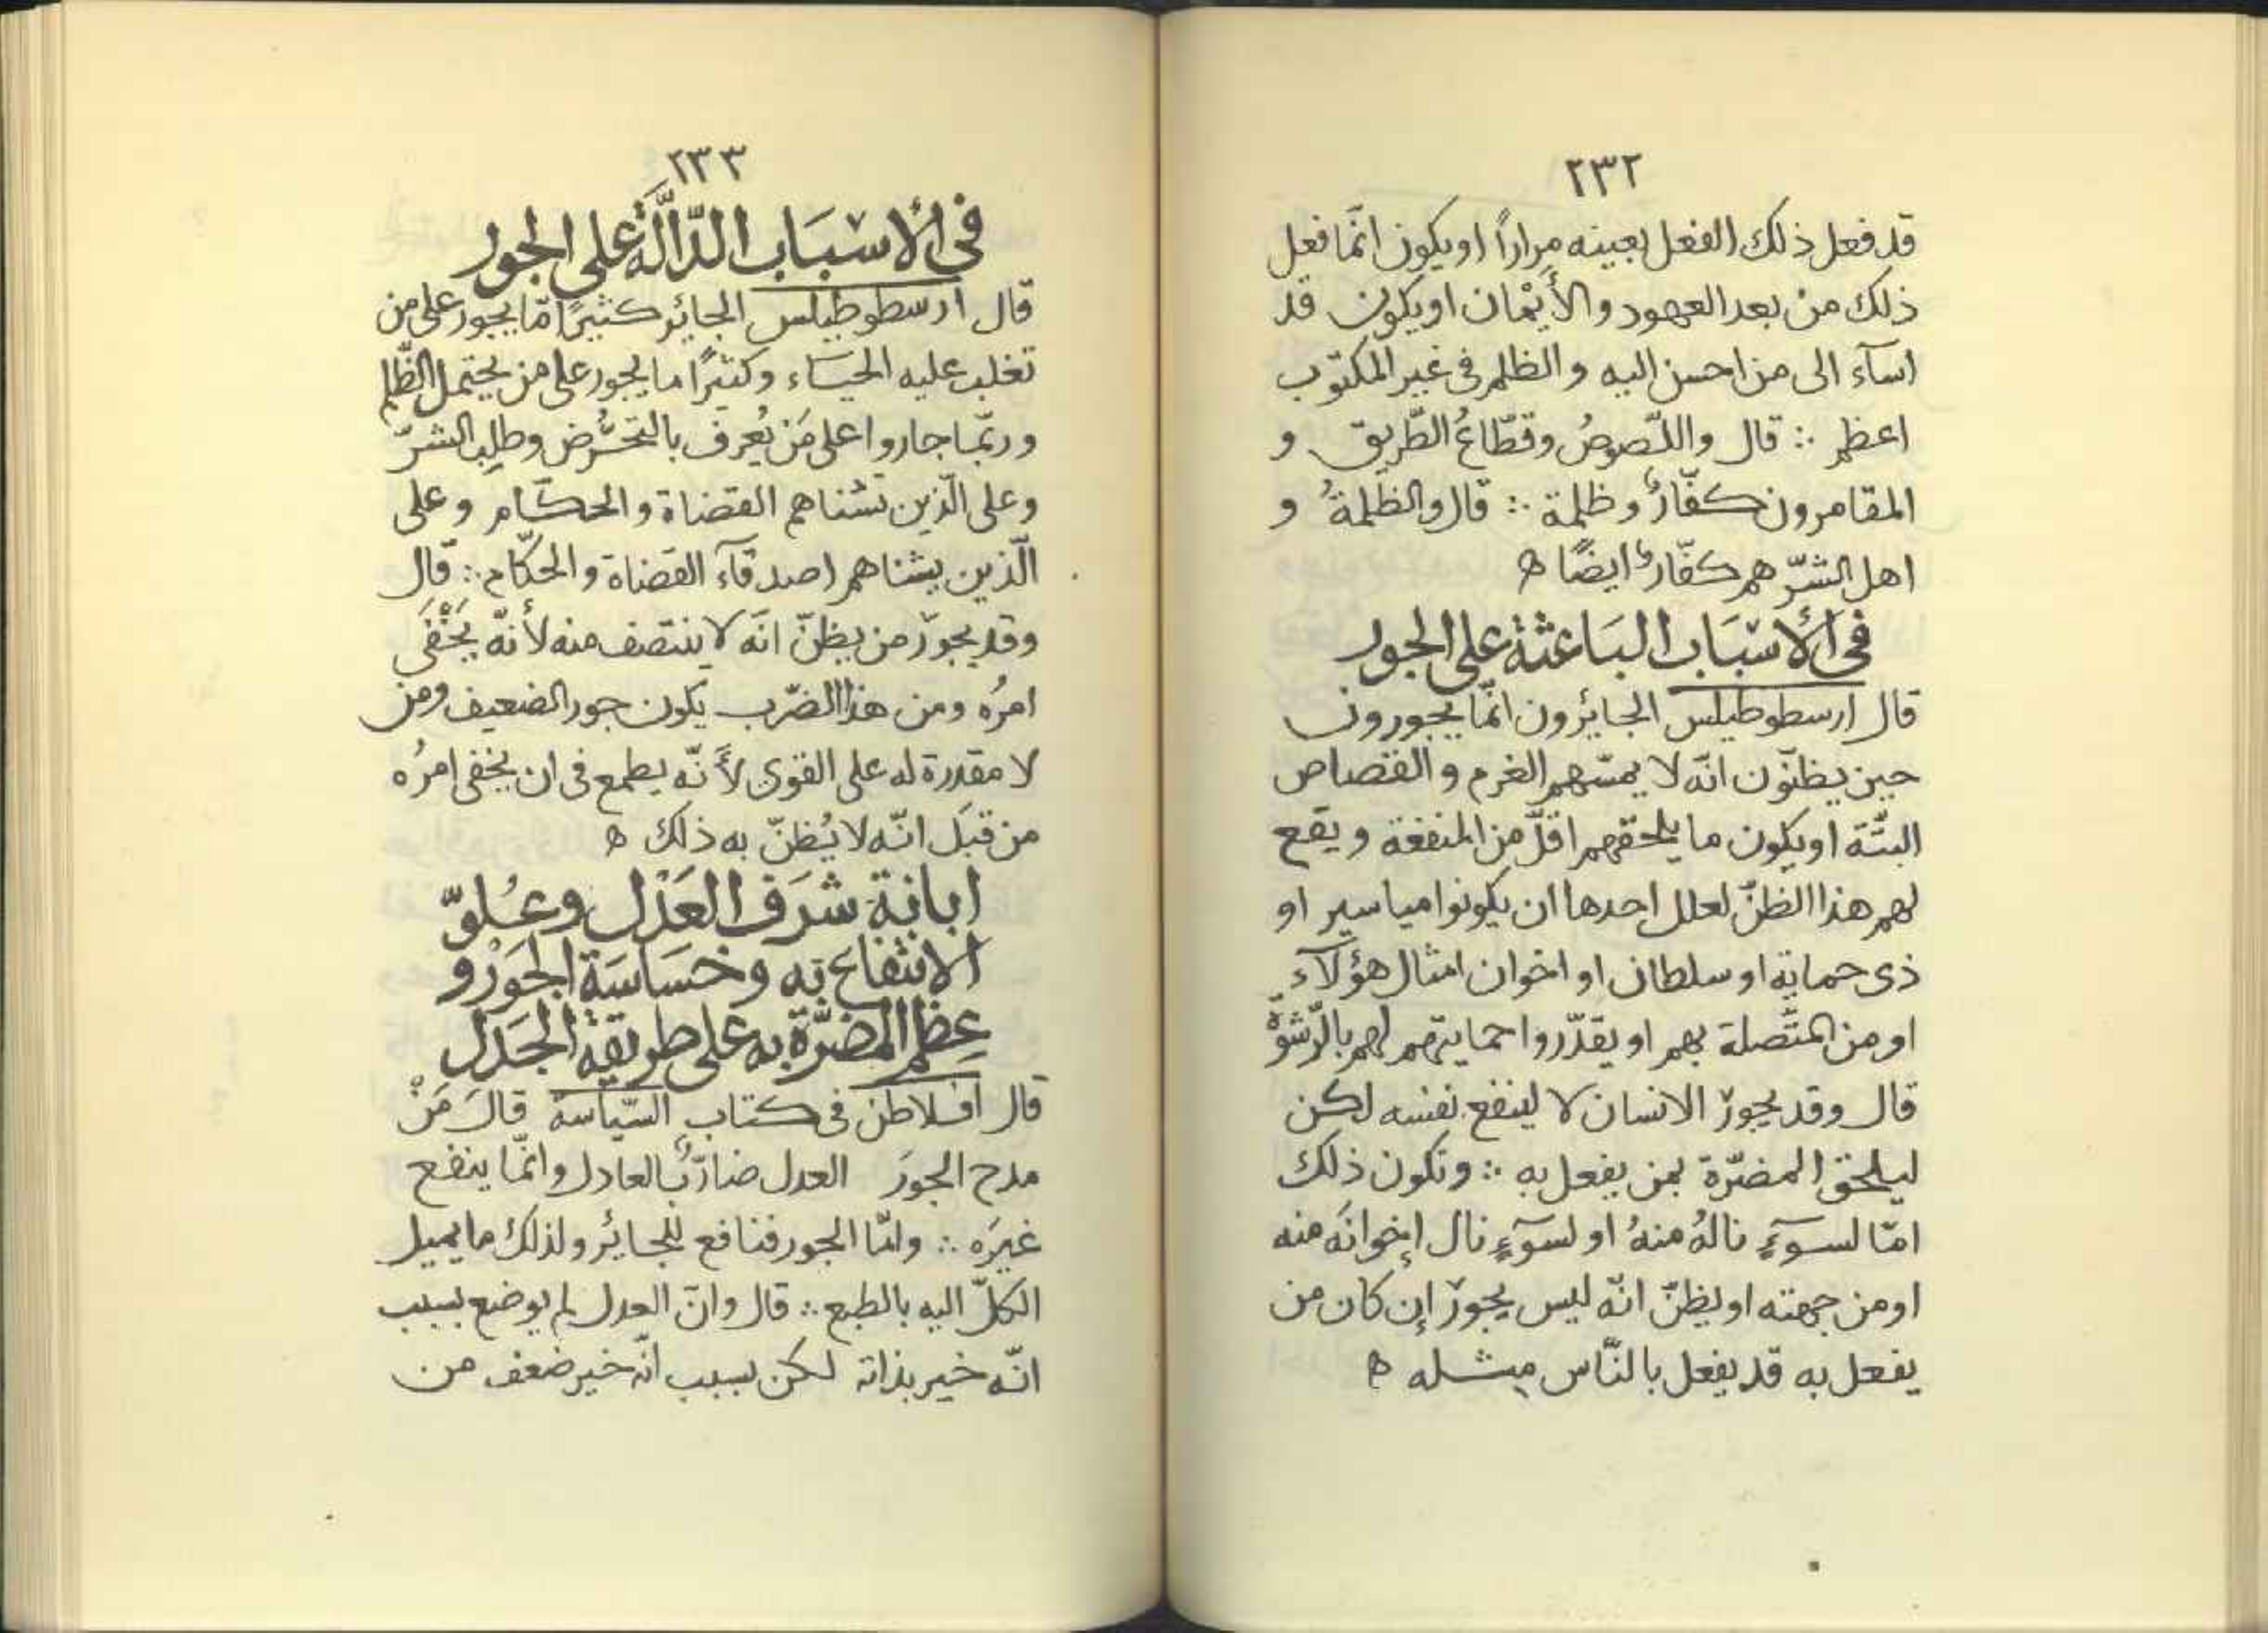 ٢٣٢
قد فعل ذلك الفعل بعينه مِراراً او يكون انّما فعل
ذلك من بعد العهود والأَيْمان او يكون قد
اسآء الى من احسن اليه والظلم فى غير المكتوب
اعظم ∴ قال واللّصوصُ وقطّاعُ الطّريق و
المقامرون كفّارٌ وظلمة ∴ قال والظلمةُ و
اهل الشرّ هم كفّارٌ ايضًا ه
فى الأسْبَاب البَاعثة على الجور
قال ارسطوطيلس الجائرون انّما يجورون
حين يظنّون انّه لا يمسّهم الغرم والقصاص
البتّة او يكون ما يلحقهم اقلّ من المنفعة ويقع
لهم هذا الظنّ لعلل احدها ان يكونوا مياسير او
ذى حماية او سلطان او اخوان امثال هؤلآء
او من المتّصلة بهم او يقدّروا حمايتهم لهم بالرّشوّة
قال وقد يجورُ الانسان لا لينفع نفسه لكن
ليلحق المضرّة بمن يفعل به ∴ وتكون ذلك
امّا لسوٓءٍ نالهُ منهُ او لسوٓءٍ نال إخوانَه منه
او من جهته او يظنّ انّه ليس يجورُ إن كان من
يفعل به قد يفعل بالنّاس مِثله ه
٢٣٣
فى الأسْبَاب الدّالّة على الجور
قال ارسطوطيلس الجائر كثيرًا مّا يجور على من
تغلب عليه الحيَاء وكثيرًا ما يجور على من يحتمل الظّلم
وربّما جاروا على مَن يُعرف بالتحرُّض وطلب الشرّ
وعلى الّذين تشناهم القضاة والحكّام وعلى
الّذين يشناهم اصدقآء القضاة والحكّام ∴ قال
وقد يجورُ من يظنّ انّه لا ينتصف منه لأنّه يَخْفَى
امرُه ومن هذا الضّرب يكون جور الضعيف ومن
لا مقدرة له على القوى لأَنّه يطمع فى ان يخفى امرُه
من قبَل انّه لا يُظنّ به ذلك ه
ابانة شرَف العَدْل وعُلوّ
الانتفاع به وخسَاسَة الجَوْر و
عِظَم المضرّة به على طريقة الجَدَل
قال افلاطن فى كتاب السّياسة قالَ مَنْ
مدح الجورَ العدل ضارٌّ بالعادل وانّما ينفع
غيرَه ∴ وامّا الجور فنافع للجائر ولذلك ما يميل
الكلّ اليه بالطبع ∴ قال وانّ العدل لم يوضع بسبب
انّه خير بذاته لكن بسبب انّه خير ضعف من